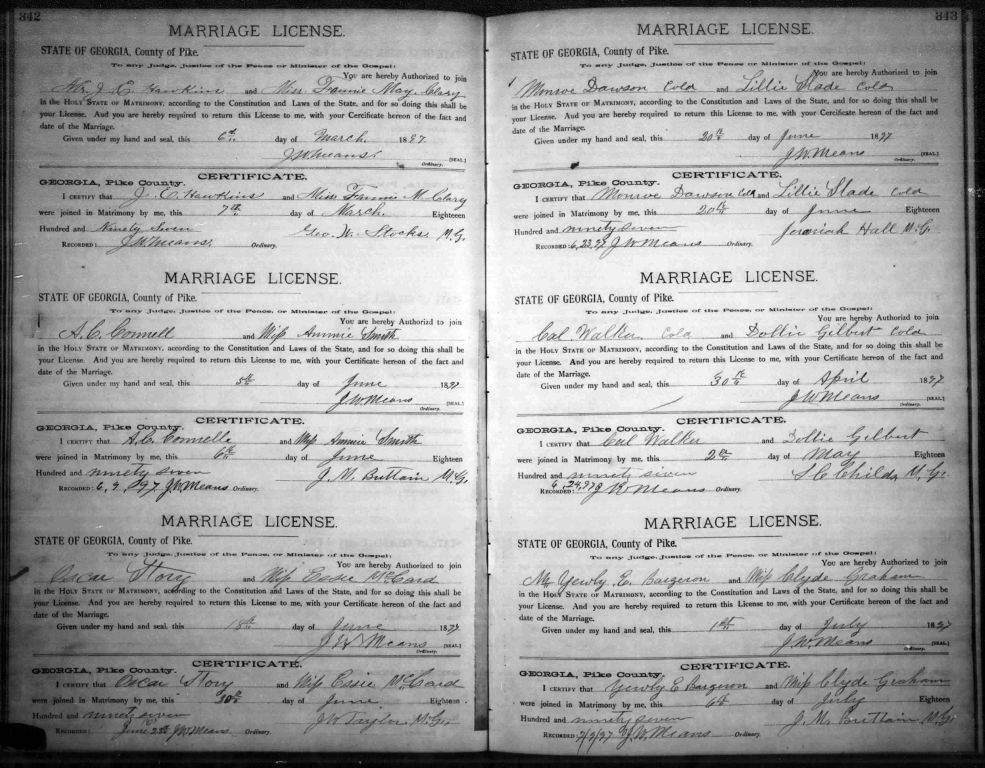 342
MARRIAGE LICENSE.
STATE OF GEORGIA, County of Pike.
To any Judge, Justice of the Peace, or Minister of the Gospel:
You are hereby Authorized to join
Mr. J. E. Hawkins and Miss Fannie May Clary
in the HOLY STATE OF MATRIMONY, according to the Constitution and Laws of the State, and for so doing this shall be
your License. And you are hereby required to return this License to me, with your Certificate hereon of the fact and
date of the Marriage.
Given under my hand and seal, this 6th day of March 1897.
J.W. Means. [SEAL.]
Ordinary.
CERTIFICATE.
GEORGIA, Pike County.
I CERTIFY that J. E. Hawkins and Miss Fannie M. Clary
were joined in Matrimony by me, this 7th day of March. Eighteen
Hundred and Ninety Seven Geo. W. Stocks M.G.
RECORDED: J.W. Means. Ordinary.
MARRIAGE LICENSE.
STATE OF GEORGIA, County of Pike.
To any Judge, Justice of the Peace, or Minister of the Gospel:
You are hereby Authorized to join
A. C. Connell and Miss Annie Smith
in the HOLY STATE OF MATRIMONY, according to the Constitution and Laws of the State, and for so doing this shall be
your License. And you are hereby required to return this License to me, with your Certificate hereon of the fact and
date of the Marriage.
Given under my hand and seal, this 5th day of June 1897
J.W. Means [SEAL.]
Ordinary.
CERTIFICATE.
GEORGIA, Pike County.
I CERTIFY that A. C. Connelle and Miss Annie Smith
were joined in Matrimony by me, this 6th day of June Eighteen
Hundred and ninety seven J. M. Brittain M.G.
RECORDED: 6, 9, 97 J.W. Means Ordinary.
MARRIAGE LICENSE.
STATE OF GEORGIA, County of Pike.
To any Judge, Justice of the Peace, or Minister of the Gospel:
You are hereby Authorized to join
Oscar Story and Miss Essie McCard
in the HOLY STATE OF MATRIMONY, according to the Constitution and Laws of the State, and for so doing this shall be
your License. And you are hereby required to return this License to me, with your Certificate hereon of the fact and
date of the Marriage.
Given under my hand and seal, this 18th day of June 1897
J.W. Means [SEAL.]
Ordinary.
CERTIFICATE.
GEORGIA, Pike County.
I CERTIFY that Oscar Story and Miss Essie McCard
were joined in Matrimony by me, this 20th day of June Eighteen
Hundred and ninety seven J. W. Taylor M.G.
RECORDED: June J.W. Means Ordinary.
343
MARRIAGE LICENSE.
STATE OF GEORGIA, County of Pike.
To any Judge, Justice of the Peace or Minister of the Gospel:
You are hereby Authorized to join
Monroe Dawson Cold and Lillie Slade Cold
in the HOLY STATE OF MATRIMONY, according to the Constitution and Laws of the State, and for so doing this shall be
your License. And you are hereby required to return this License to me, with your Certificate hereon of the fact and
date of the Marriage.
Given under my hand and seal, this 20th day of June 1897
J.W. Means [SEAL.]
Ordinary.
CERTIFICATE.
GEORGIA, Pike County.
I CERTIFY that Monroe Dawson Cold and Lillie Slade Cold
were joined in Matrimony by me, this 20th day of June Eighteen
Hundred and ninety seven Jeremiah Hall M.G.
RECORDED: 6, 23, 97 J.W. Means Ordinary.
MARRIAGE LICENSE.
STATE OF GEORGIA, County of Pike.
To any Judge, Justice of the Peace, or Minister of the Gospel:
You are hereby Authorized to join
Cal Walker Cold and Dollie Gilbert Cold
in the HOLY STATE OF MATRIMONY, according to the Constitution and Laws of the State, and for so doing this shall be
your License. And you are hereby required to return this License to me, with your Certificate hereon of the fact and
date of the Marriage.
Given under my hand and seal, this 30th day of April 1897
J.W. Means [SEAL.]
Ordinary.
CERTIFICATE.
GEORGIA, Pike County.
I CERTIFY that Cal Walker and Dollie Gilbert
were joined in Matrimony by me, this 2nd day of May Eighteen
Hundred and ninety seven S. C. Childs M.G.
RECORDED: 6, 24, 97 J.W. Means Ordinary.
MARRIAGE LICENSE.
STATE OF GEORGIA, County of Pike.
To any Judge, Justice of the Peace, or Minister of the Gospel:
You are hereby Authorized to join
Mr. Yewly E. Bargeron and Miss Clyde Graham
in the HOLY STATE OF MATRIMONY, according to the Constitution and Laws of the State, and for so doing this shall be
your License. And you are hereby required to return this License to me, with your Certificate hereon of the fact and
date of the Marriage.
Given under my hand and seal, this 1st day of July 1897
J.W. Means [SEAL.]
Ordinary.
CERTIFICATE.
GEORGIA, Pike County.
I CERTIFY that Yewly E Bargeron and Miss Clyde Graham
were joined in Matrimony by me, this 6th day of July Eighteen
Hundred and ninety seven J. M. Brittain M.G.
RECORDED: J.W. Means Ordinary.